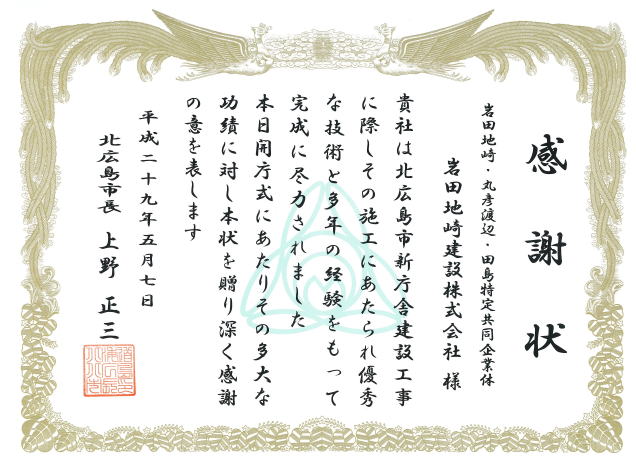 感謝状
岩田地崎・丸彦渡辺・田島特定共同企業体
岩田地崎建設株式会社 様
貴社は北広島市新庁舎建設工事
に際しその施工にあたられ優秀
な技術と多年の経験をもって
完成に尽力されました
本日開庁式にあたりその多大な
功績に対し本状を贈り深く感謝
の意を表します
平成二十九年五月七日
北広島市長 上野 正三